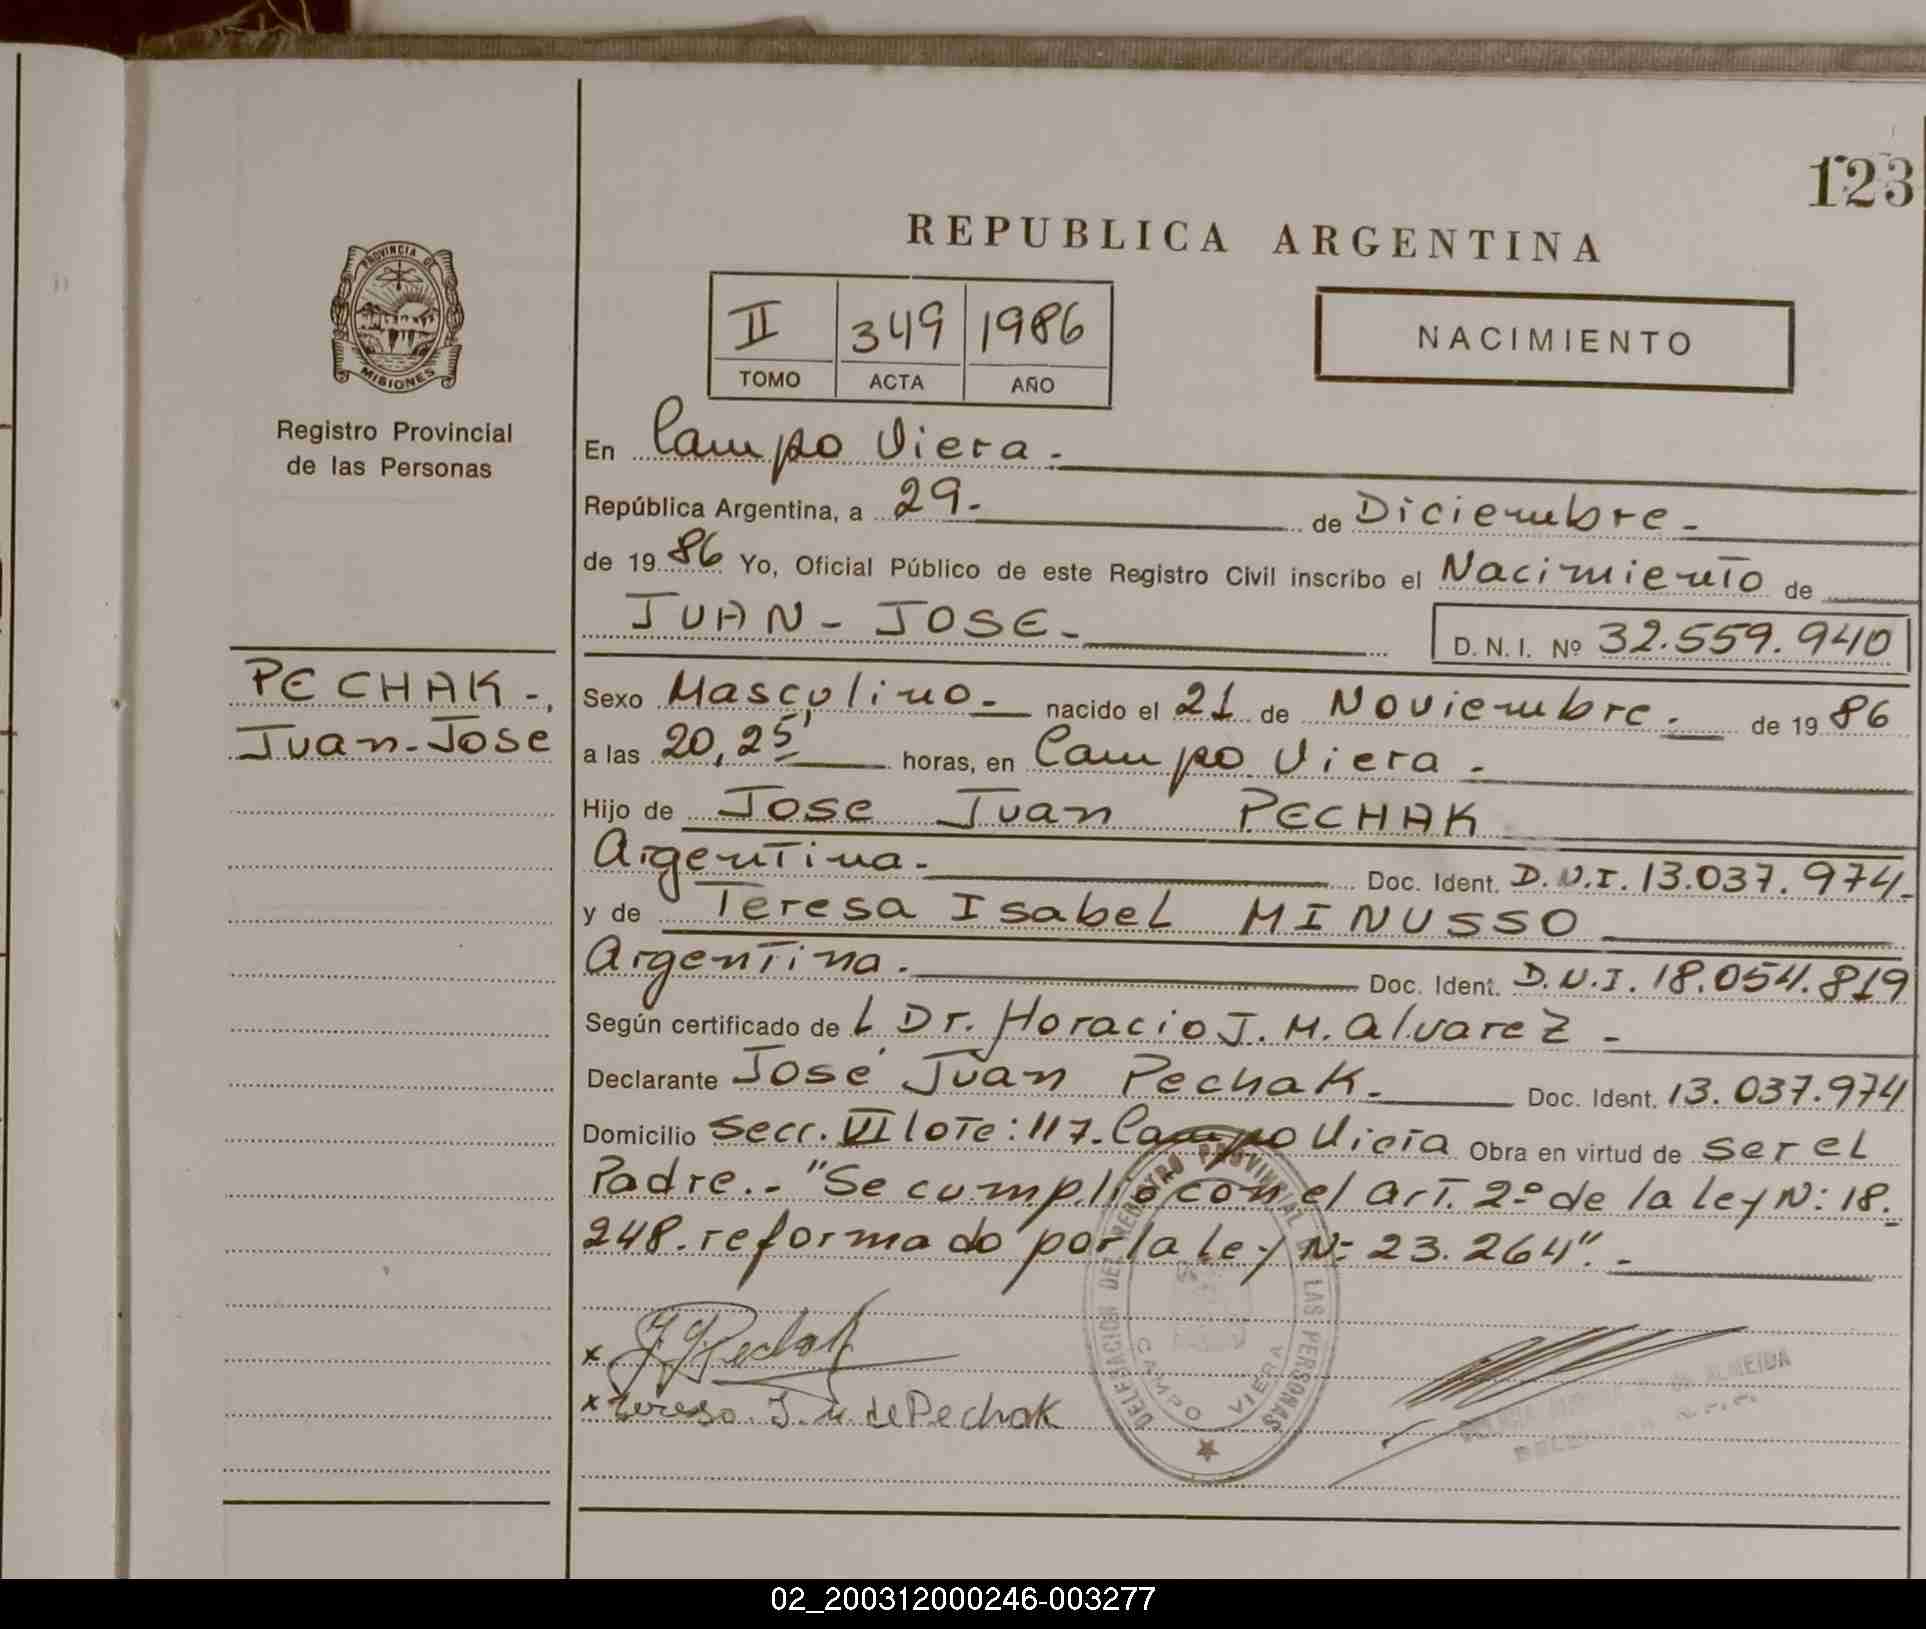 123
REPUBLICA ARGENTINA
PROVINCIA DE
MISIONES
Registro Provincial
de las Personas
II 349 1986
TOMO ACTA AÑO
NACIMIENTO
En Campo Viera.
República Argentina, a 29. de Diciembre.
de 1986 Yo, Oficial Público de este Registro Civil inscribo el Nacimiento de
JUAN - JOSE.
D. N. I. Nº 32.559.940
PECHAK.,
Juan-Jose
Sexo Masculino. nacido el 21 de Noviembre. de 1986
a las 20,25' horas, en Campo Viera.
Hijo de Jose Juan PECHAK
Argentina. Doc. Ident. D.N.I. 13.037.974.
y de Teresa Isabel MINUSSO
Argentina. Doc. Ident. D.N.I. 18.054.819
Según certificado de L Dr. Horacio J. M. Alvarez.
Declarante José Juan Pechak. Doc. Ident. 13.037.974
Domicilio Secc. VI lote: 117. Campo Viera Obra en virtud de ser el
Padre.- "Se cumplió con el art. 2º de la ley N: 18.
248. reformado por la ley N: 23.264".-
x J J Pechak
x Teresa. I. M de Pechak
DELEGACION DEL REGISTRO PROVINCIAL DE LAS PERSONAS
CAMPO VIERA
DE ALMEIDA
02_200312000246-003277